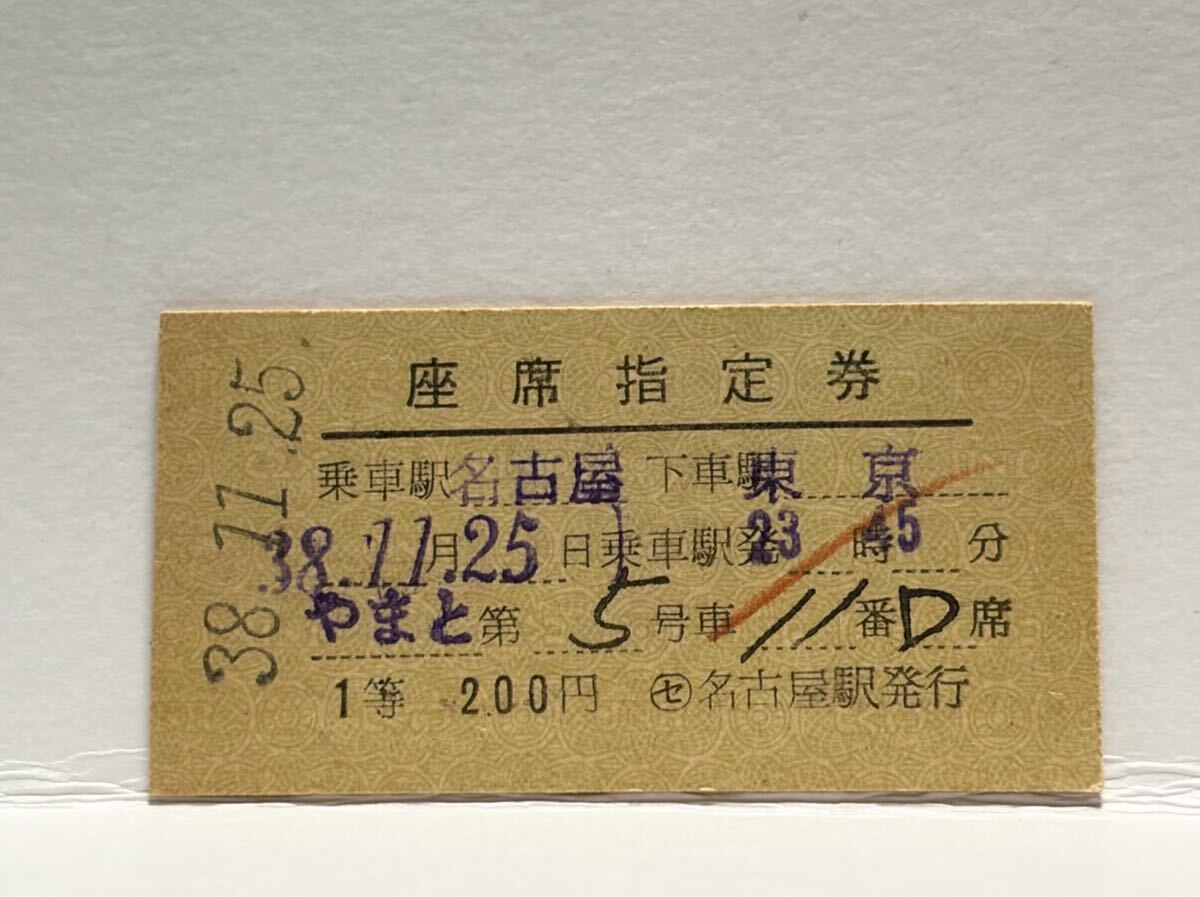 座席指定券
乗車駅 名古屋 下車駅 東京
38.11月.25日 乗車駅発 23時45分
やまと 第5号車 11番D席
1等 200円 ㋝名古屋駅発行
38.11.25